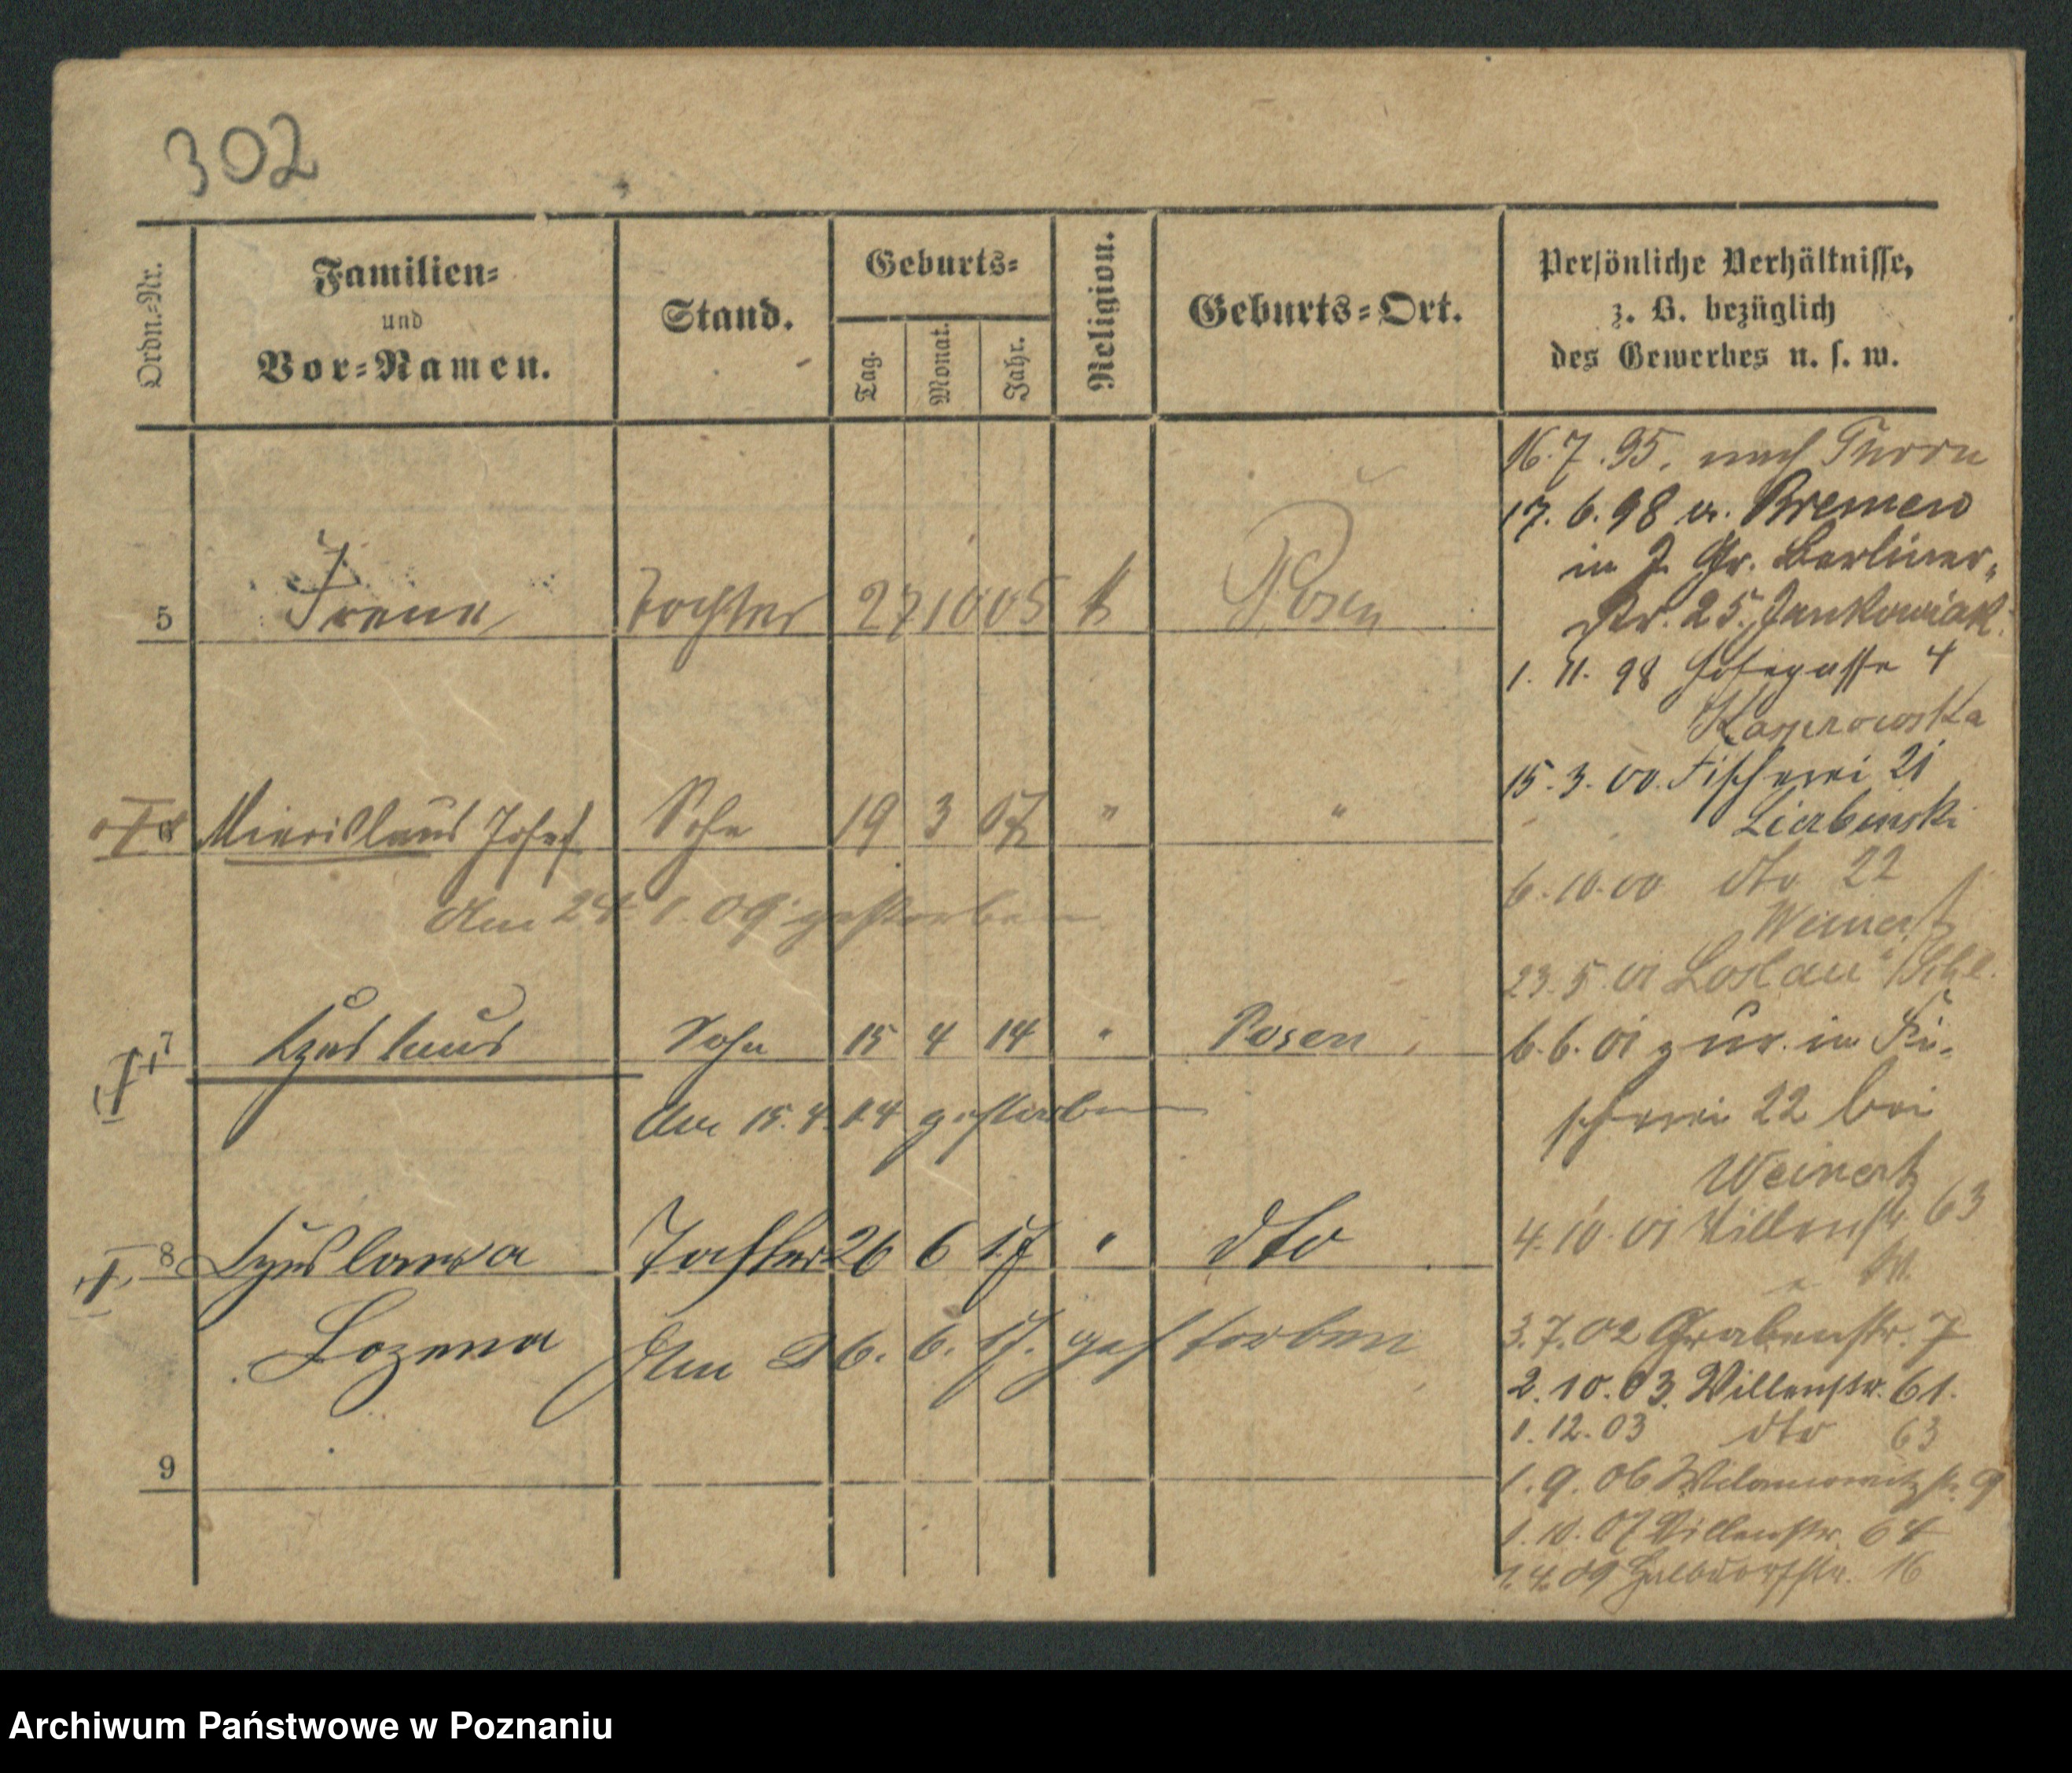 302
Ordn.-Nr.
Familien-
und
Vor-Namen.
Stand.
Geburts-
Tag.
Monat.
Jahr.
Religion.
Geburts-Ort.
Persönliche Verhältnisse,
z. B. bezüglich
des Gewerbes u. s. w.
5 Irena Tochter 27 10 05 k Posen
6 Josef Sohn 19 3 07 " "
Am 24. 1. 09 gestorben
7 Sohn 15 4 14 " Posen
Am 15. 4. 14 gestorben
8 Tochter 26 6 17 " dto
Bozena Am 26. 6. 17. gestorben
9
16.7.95. nach Thorn
17.6.98 v. Bremen
in J. Gr. Berliner-
str. 25. Jankowiak.
1. 11. 98 4
Kasprowska
15.3.00. Fischerei 21
6.10.00 dto 22
Weinert
23.5.01 Loslau /Schl.
6.6.01 zur. in Fi-
scherei 22 bei
Weinert
4.10.01 Villenstr. 63
3.7.02 Grabenstr. 7
2.10.03. Villenstr. 61.
1.12.03 dto 63
1.9.06 Wilamowitzstr. 9
1.10.07 Villenstr. 64
1.4.09 16
Archiwum Państwowe w Poznaniu